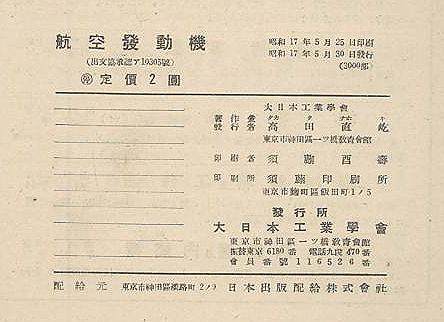 航空發動機
(出文協承認ア19305號)
㊞ 定價2圓
昭和17年5月25日印刷
昭和17年5月30日發行
(3000部)
大日本工業學會
タカ タ ナオ キ
著作兼
發行者 高田直屹
東京市神田區一ツ橋敎育會館
印刷者 須藤酉壽
印刷所 須藤印刷所
東京市麴町區飯田町1ノ5
發行所
大日本工業學會
東京市神田區一ツ橋敎育會館
振替東京6180番 電話九段470番
會員番號116526番
配給元 東京市神田區淡路町2ノ9 日本出版配給株式會社